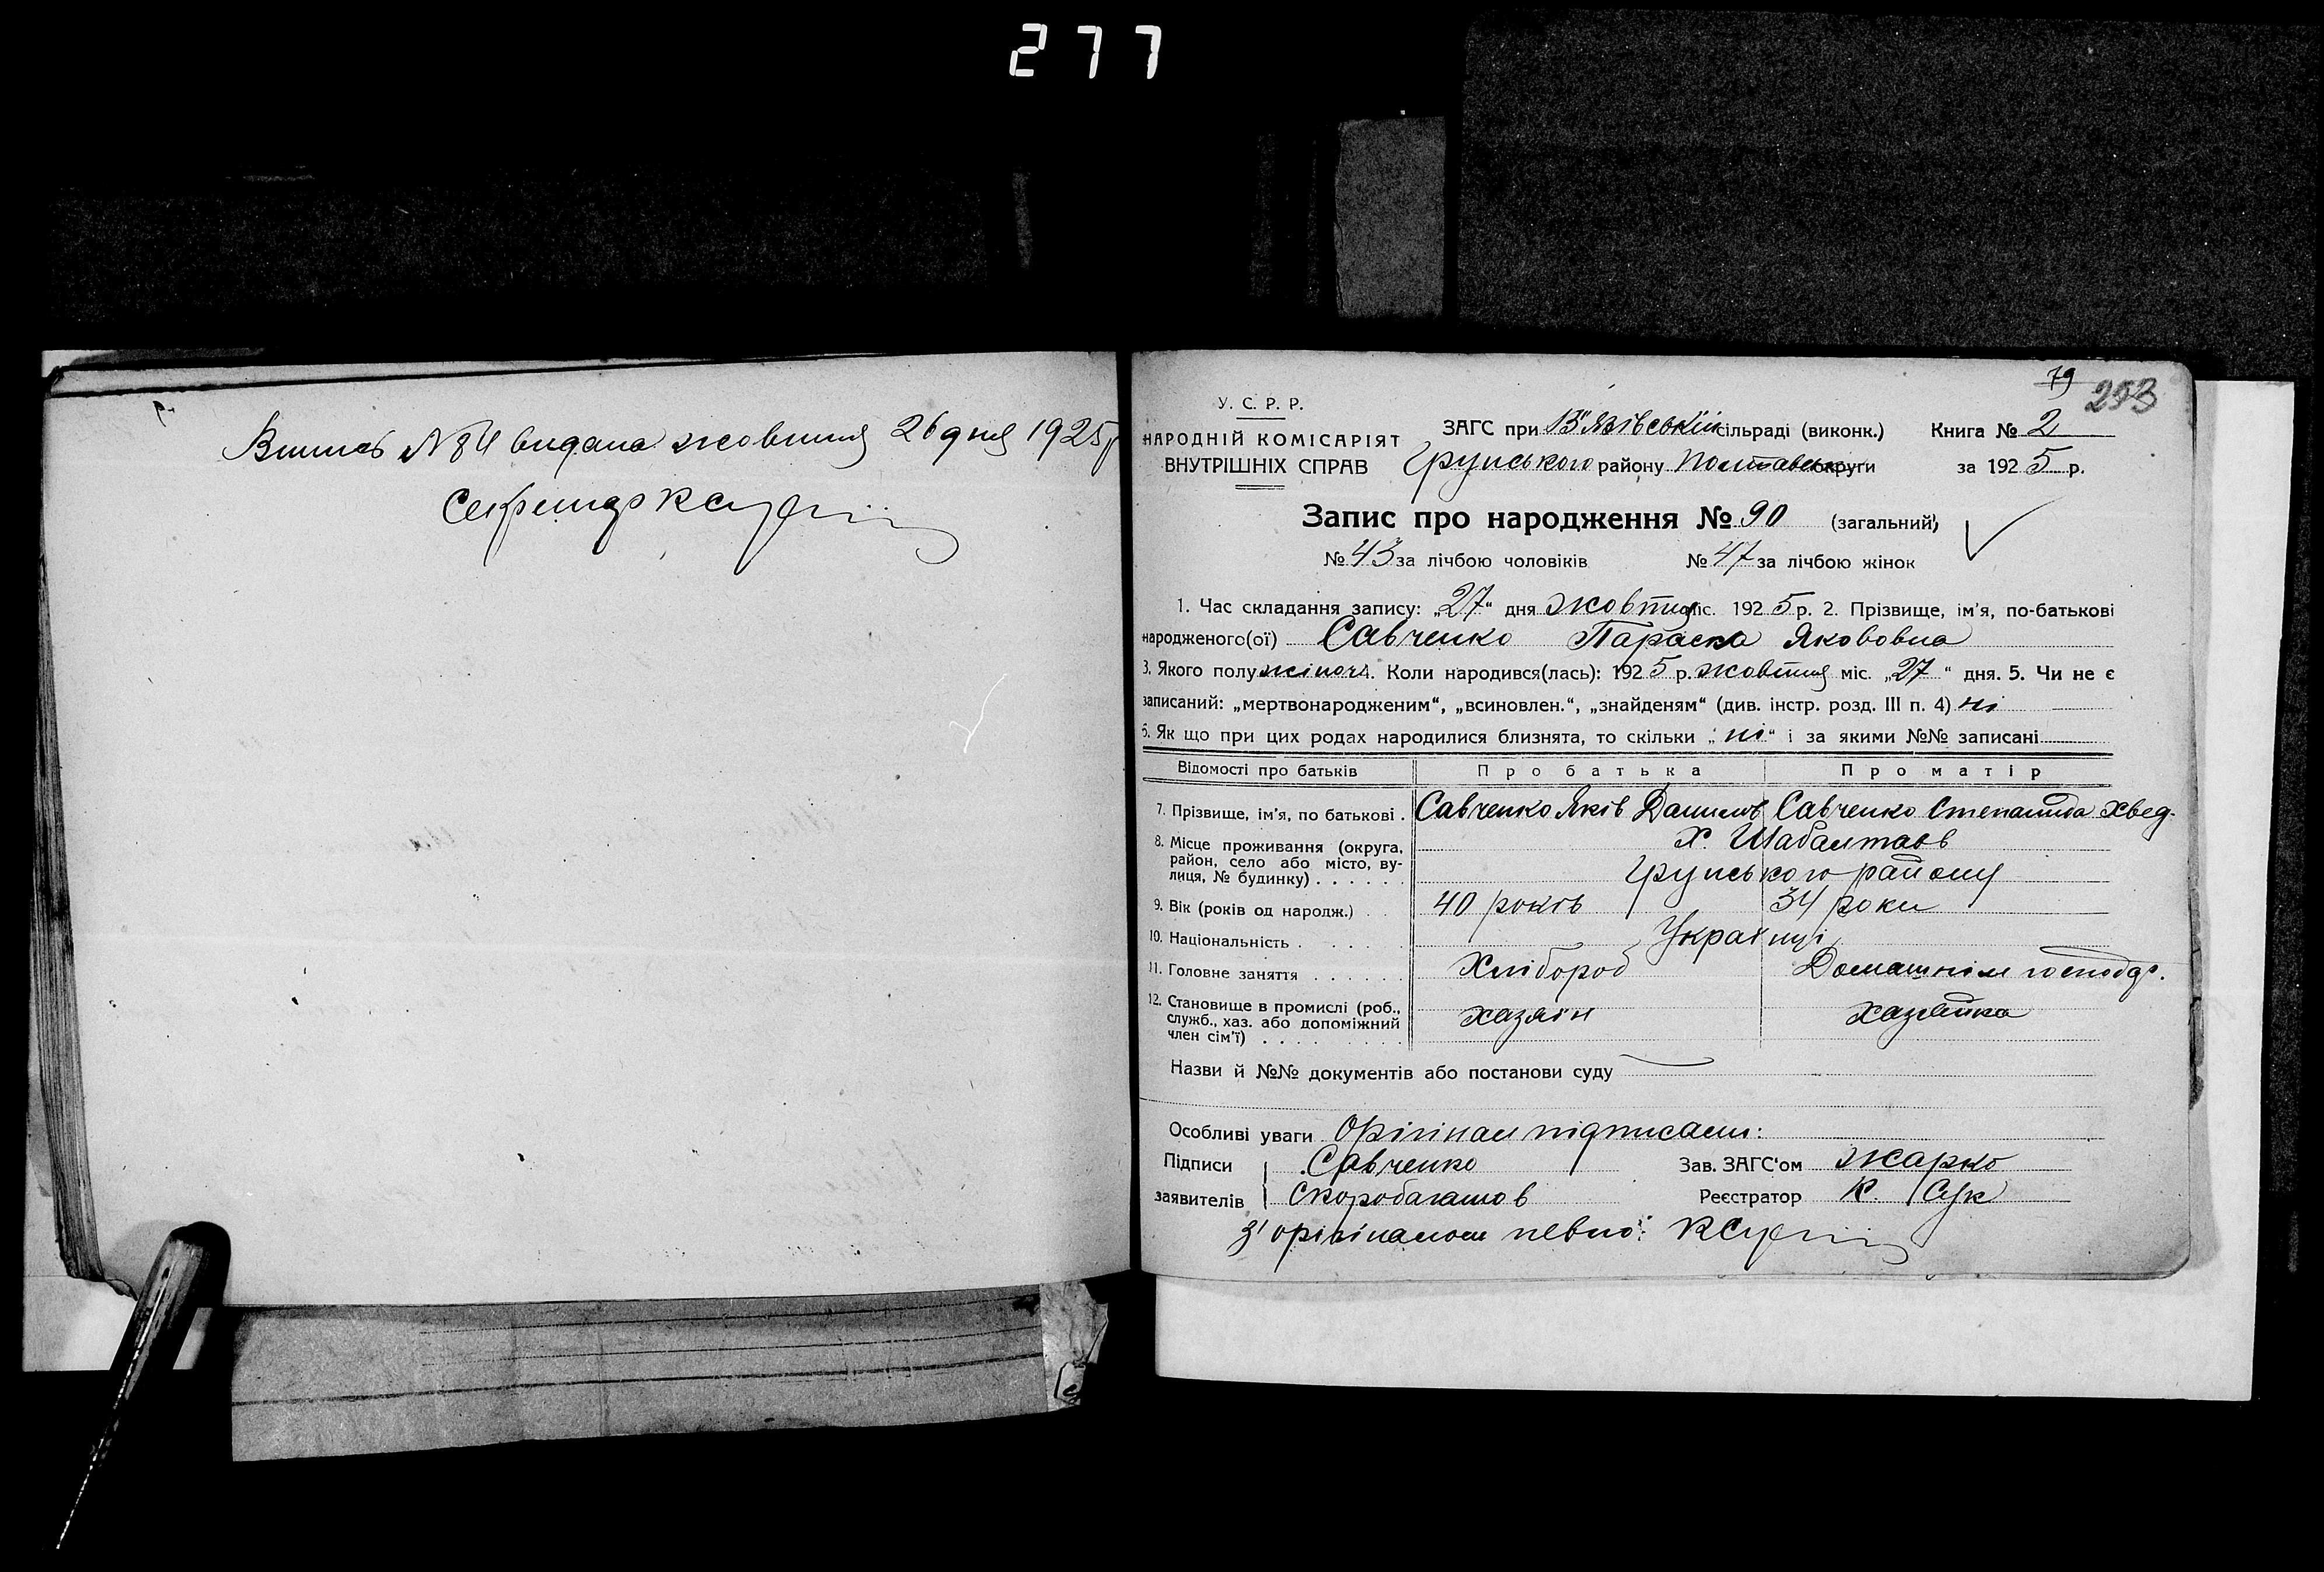 277
Випись № 84 видана жовтня 26 дня 1925 р
Секретар КСук
79 253
У. С. Р. Р.
НАРОДНІЙ КОМІСАРІЯТ
ВНУТРІШНІХ СПРАВ
ЗАГС при В'язівській сільраді (виконк.) Книга № 2
Грунського району Полтавськ округи за 1925 р.
Запис про народження № 90 (загальний)
№ 43 за лічбою чоловіків № 47 за лічбою жінок
1. Час складання запису: „27“ дня жовтня міс. 1925 р. 2. Прізвище, ім'я, по-батькові
народженого(ої) Савченко Параска Якововна
3. Якого полу жіноч. 4. Коли народився(лась): 1925 р. жовтня міс. „27“ дня. 5. Чи не є
записаний: „мертвонародженим“, „всиновлен.“, „знайденям“ (див. інстр. розд. III п. 4) ні
6. Як що при цих родах народилися близнята, то скільки „ні“ і за якими №№ записані
Відомості про батьків Про батька Про матір
7. Прізвище, ім'я, по батькові . Савченко Яків Данилов Савченко Степанида Хвед.
8. Місце проживання (округа, район, село або місто, вулиця, № будинку) . . . . . . Х. Шабалтаїв
Грунського району
9. Вік (років од народж.) . . 40 років 34 роки
10. Національність . . . . . Українці
11. Головне заняття . . . . . . Хлібороб Домашнім господар.
12. Становище в промислі (роб., служб., хаз. або допоміжний член сім'ї) . . . . хазяїн хазяйка
Назви й №№ документів або постанови суду
Особливі уваги Орігінал підписали:
Підписи Савченко Зав. ЗАГС'ом Жарко
заявителів Скоробагатов Реєстратор К. Сук
З' орігіналом певно: КСук